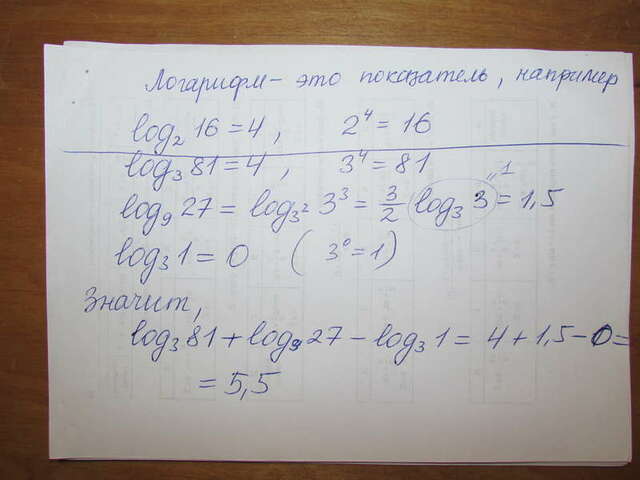 Логарифм - это показатель, например
log₂ 16 = 4, 2⁴ = 16
log₃ 81 = 4, 3⁴ = 81
log₉ 27 = log₃² 3³ = 3/2 log₃ 3 = 1,5
"1
log₃ 1 = 0 (3⁰ = 1)
Значит,
log₃ 81 + log₉ 27 - log₃ 1 = 4 + 1,5 - 0 =
= 5,5